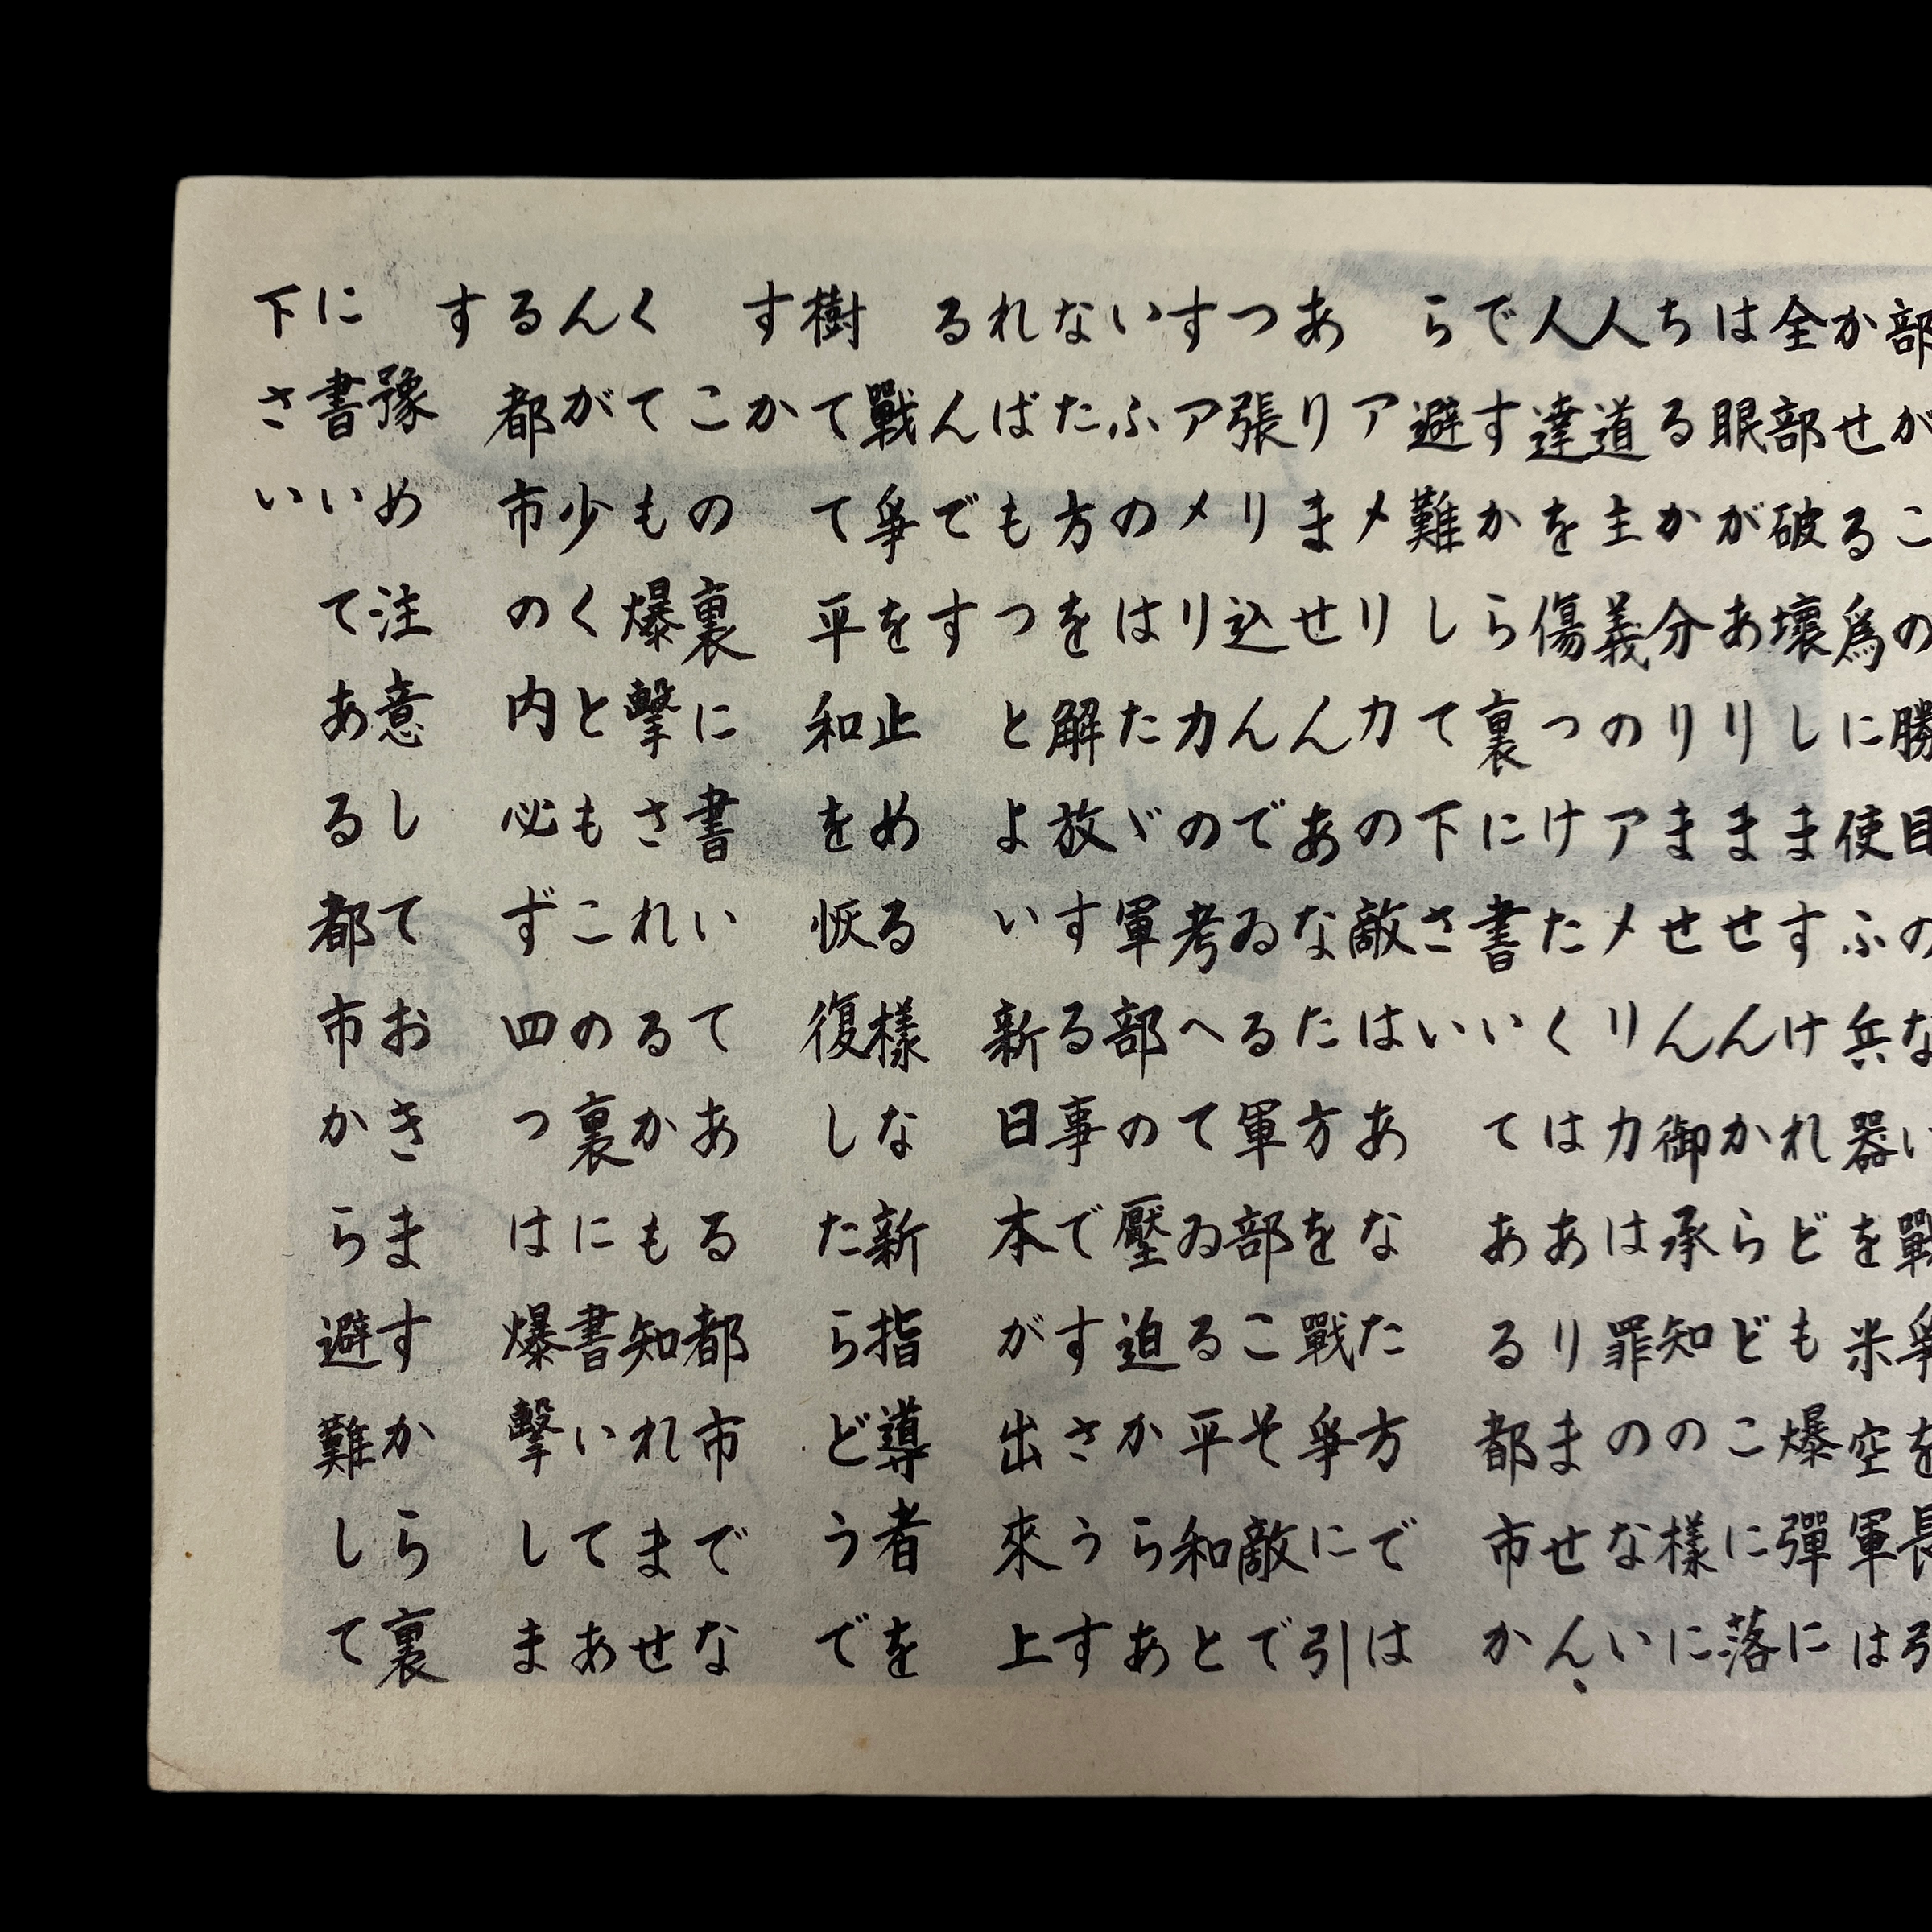 部がこの勝目のない戰爭を長引
かせる爲に使ふ兵器を米空軍は
全部破壞しますけれども爆彈に
は眼がありませんからどこに落
ちるか分りません御承知の樣に
人道主義のアメリカは罪のない
人達を傷つけたくはありません、
ですから裏に書いてある都市か
ら避難して下さい
アメリカの敵はあなた方では
ありませんあなた方を戰爭に引
つ張り込んでゐる軍部こそ敵で
すアメリカの考へてゐる平和と
いふのはたゞ軍部の壓迫からあ
なた方を解放する事ですさうす
ればもつとよい新日本が出來上
るんです
戰爭を止める樣な新指導者を
樹てて平和を恢復したらどうで
すか
この裏に書いてある都市でな
くても爆擊されるかも知れませ
んが少くともこの裏に書いてあ
る都市の内必ず四つは爆擊しま
す
豫め注意しておきますから裏
に書いてある都市から避難して
下さい